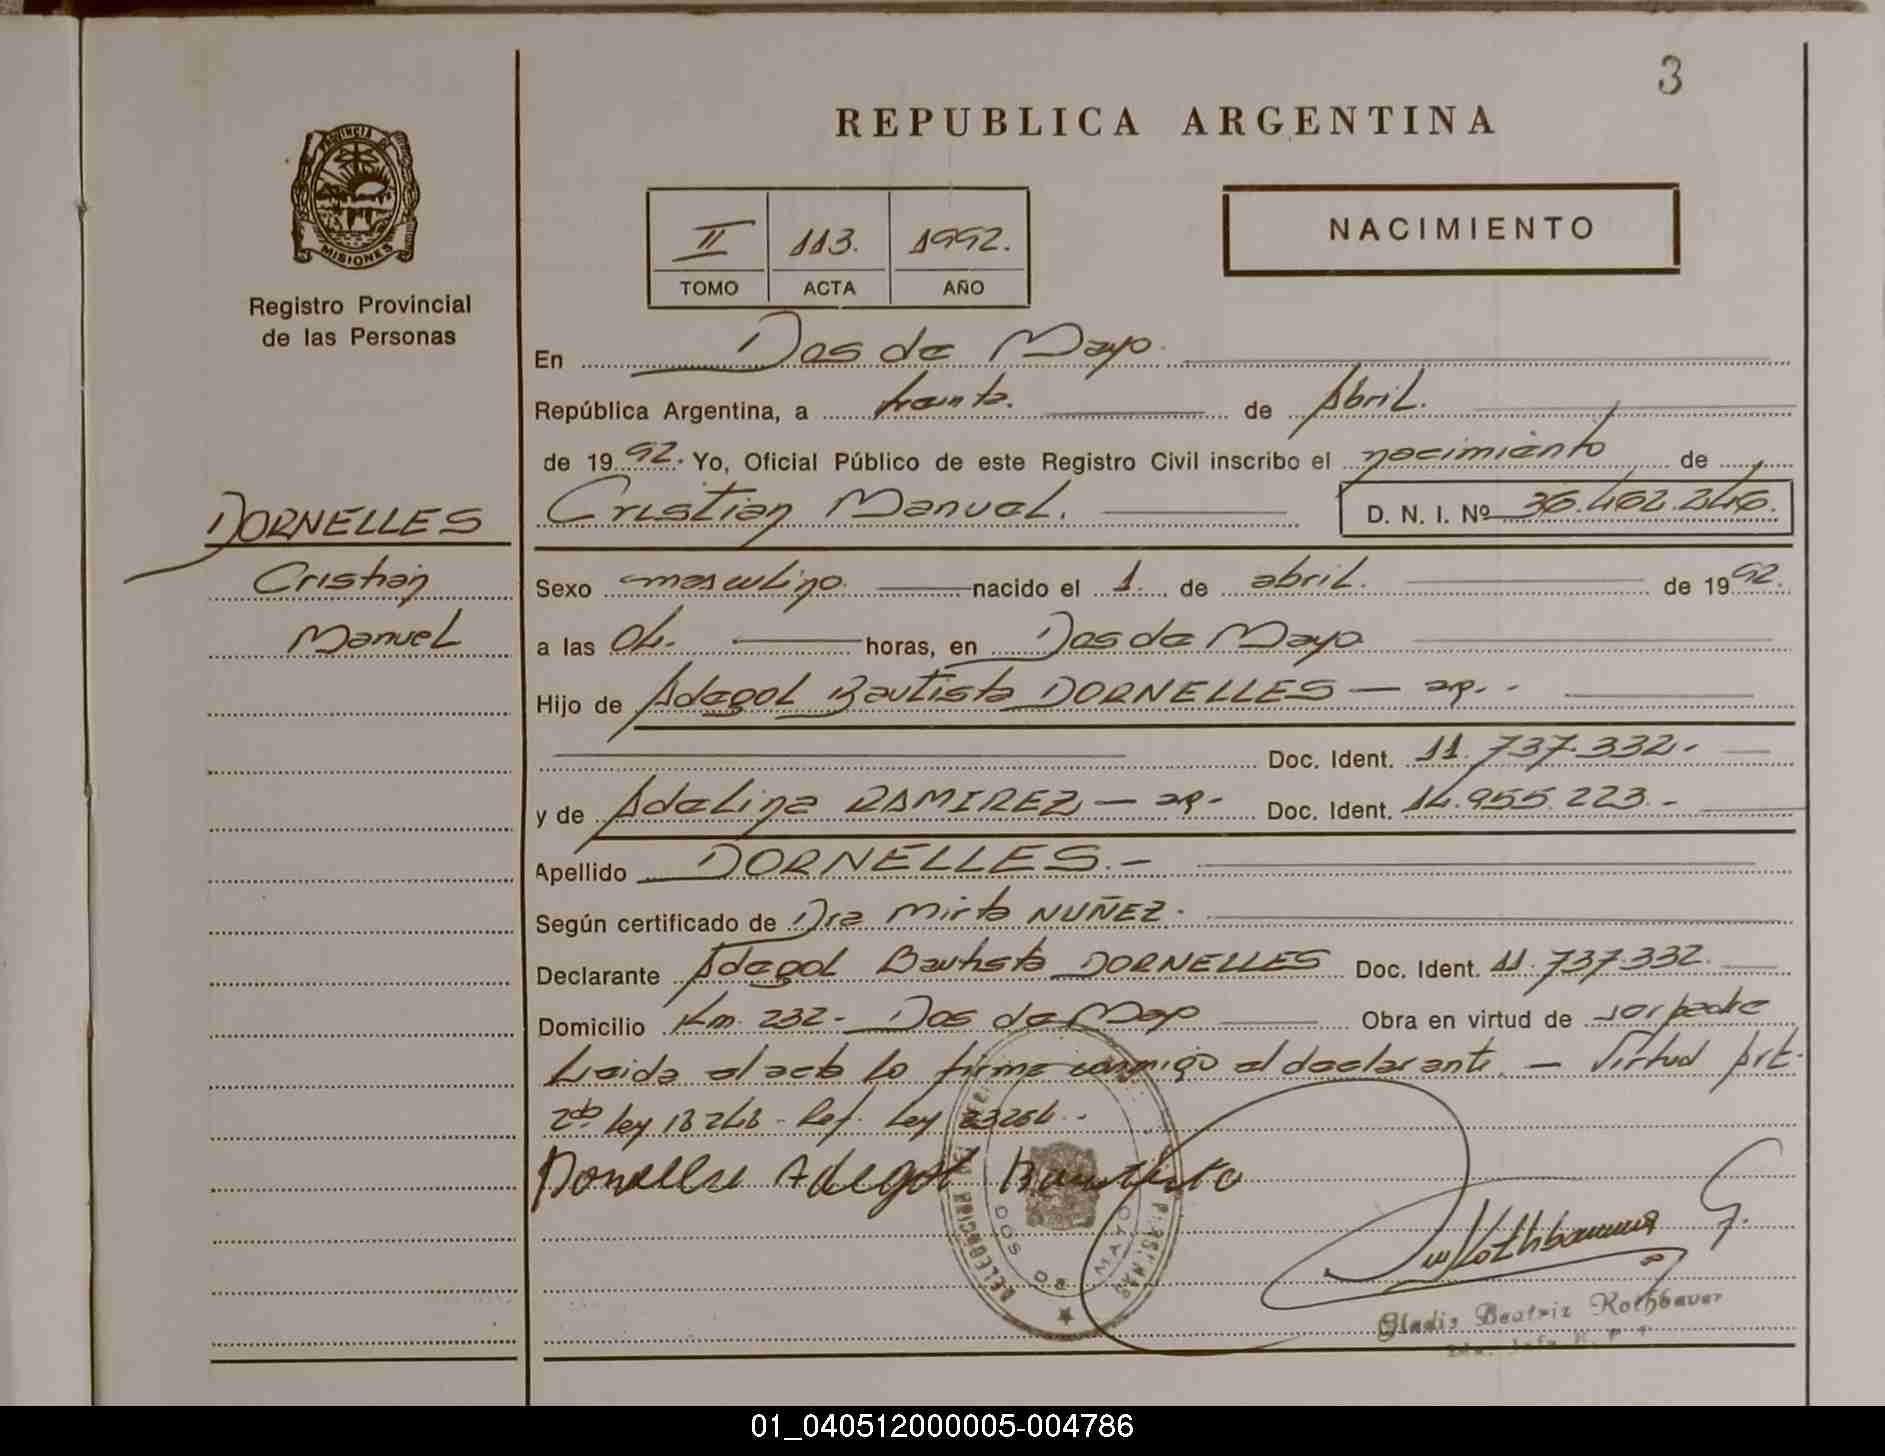 3
REPUBLICA ARGENTINA
PROVINCIA DE
MISIONES
Registro Provincial
de las Personas
II 113. 1992.
TOMO ACTA AÑO
NACIMIENTO
En Dos de Mayo.
República Argentina, a treinta. de Abril.
de 1992. Yo, Oficial Público de este Registro Civil inscribo el nacimiento de
DORNELLES
Cristian Manuel. D. N. I. Nº 36.462.246.
Cristian
Sexo masculino. nacido el 1. de abril. de 1992.
Manuel
a las 04. horas, en Dos de Mayo
Hijo de Adegol Bautista DORNELLES — ap. -
Doc. Ident. 11.737.332.-
y de Adelina RAMIREZ — ap.- Doc. Ident. 14.955.223.-
Apellido DORNELLES.-
Según certificado de Dra Mirta NUÑEZ.
Declarante Adegol Bautista DORNELLES Doc. Ident. 11.737.332.
Domicilio Km. 232 - Dos de Mayo Obra en virtud de ser padre
Leida el acta lo firma conmigo el declarante. — Virtud Art.
2do Ley 18248 - Ref. Ley 23264.-
Dornelles Adegol Bautista
DOS DE MAYO
Rothbauer G.
Gladis Beatriz Rothbauer
01_040512000005-004786